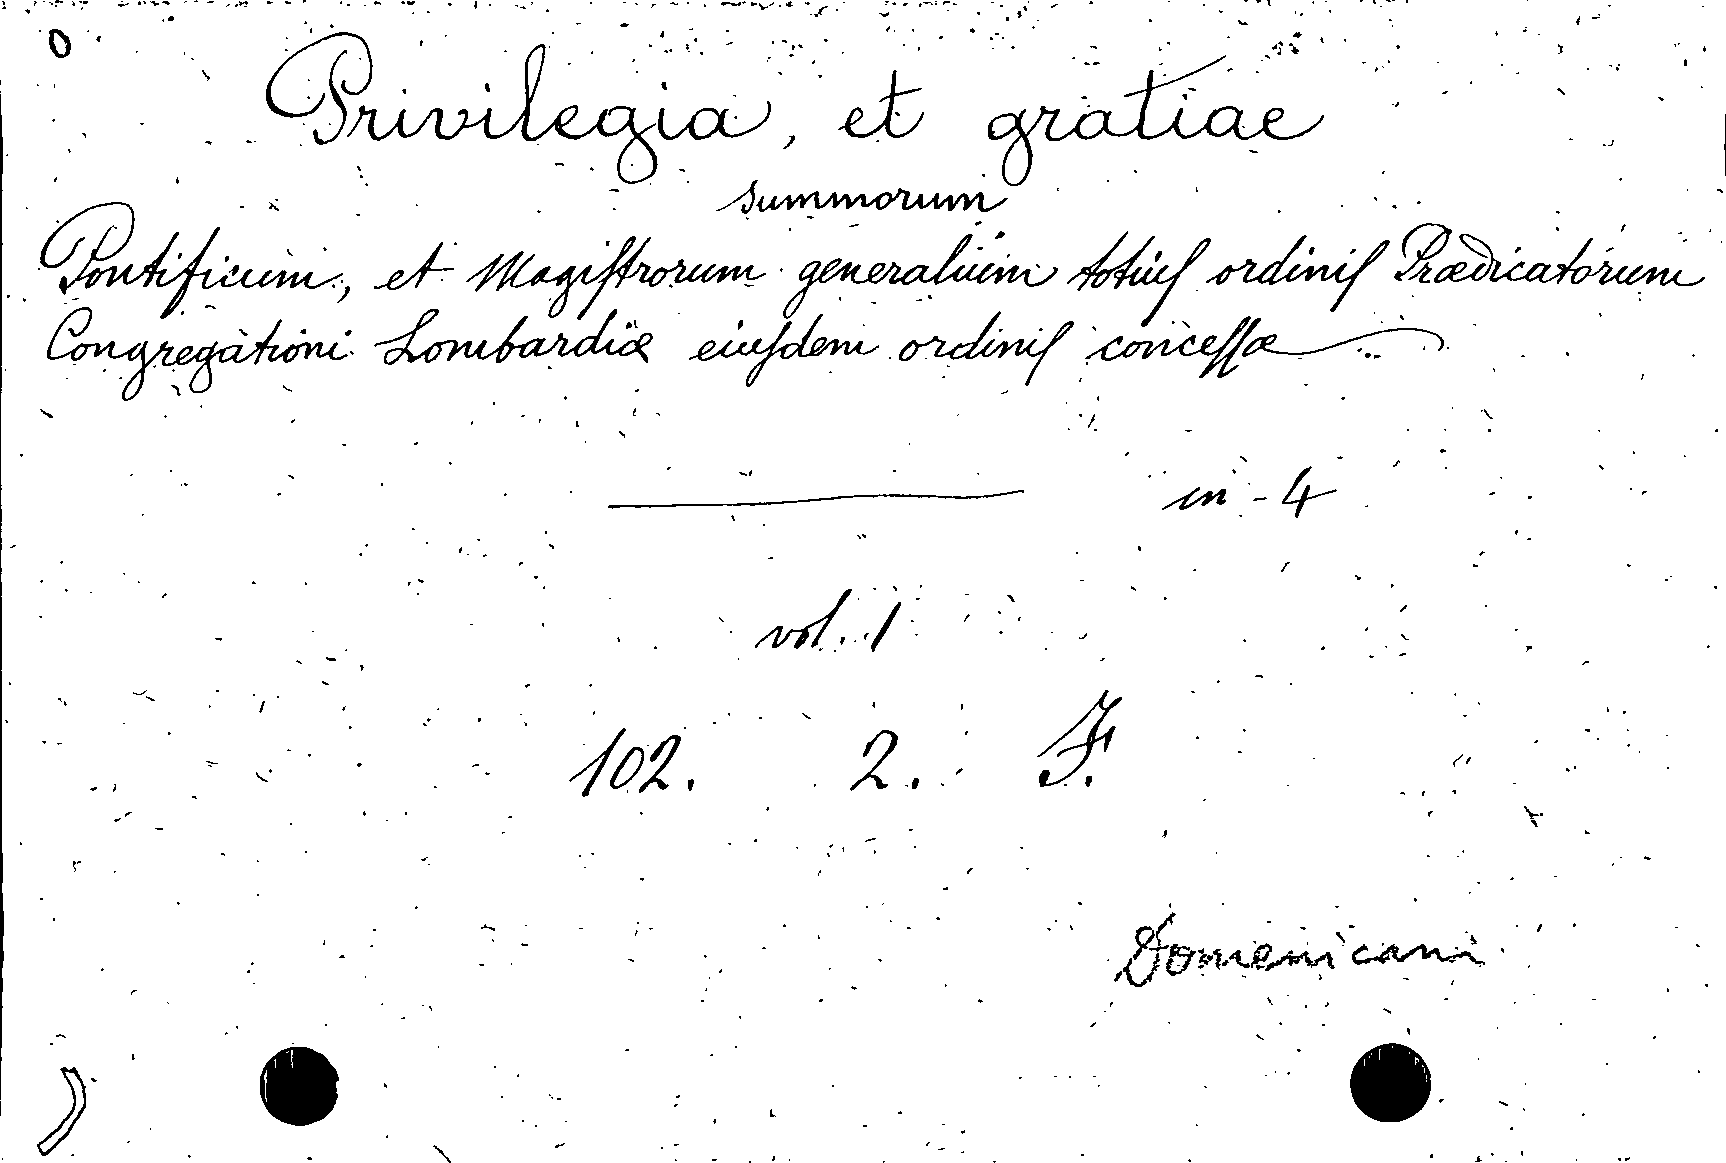 Privilegia, et gratiae
summorum
Pontificum, et Magiſtrorum generalium totiuſ ordiniſ Prædicatorum
Congregationi Lombardiæ eiuſdem ordiniſ conceſſæ
in - 4
vol. 1
102. 2. F.
Domenicani